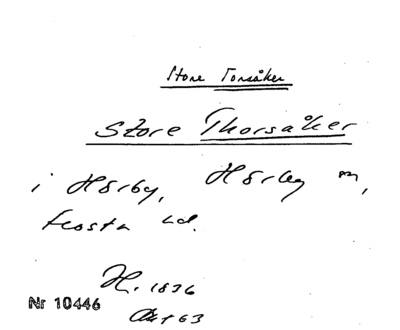 Store Torsåker
Store Thorsåker
i Hörby, Hörby sn,
Frosta hd.
H. 1836
Akt 63
Nr 10446